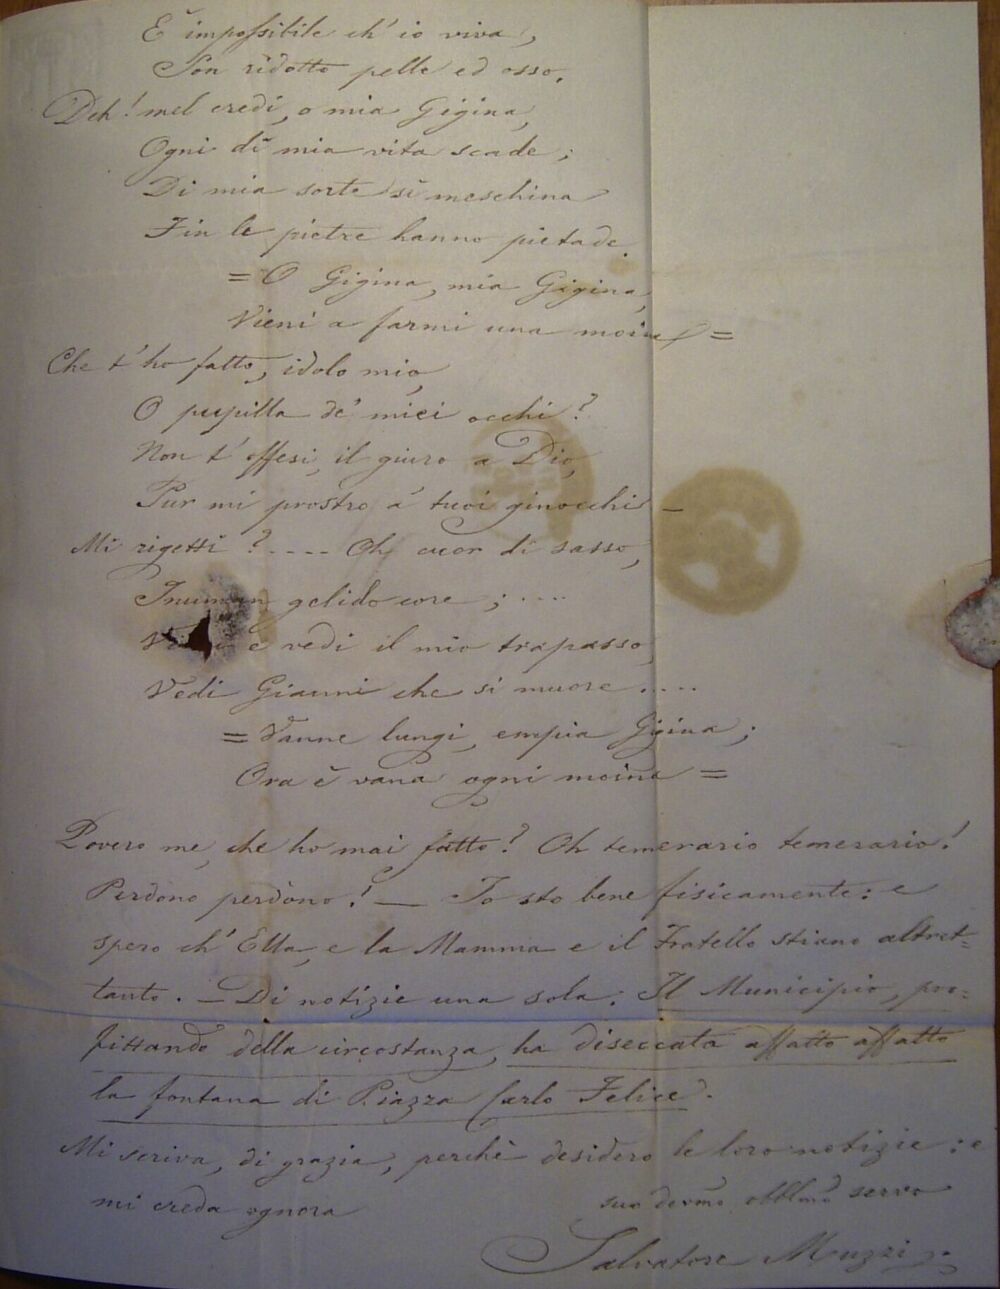 È impossibile ch' io viva,
Son ridotto pelle ed osso.
Deh! mel credi, o mia Gigina,
Ogni dì mia vita scade;
Di mia sorte sì meschina
Fin le pietre hanno pietade
= O Gigina, mia Gigina,
Vieni a farmi una moina =
Che t' ho fatto, idolo mio,
O pupilla de' miei occhi?
Non t' offesi, il giuro a Dio,
Pur mi prostro a' tuoi ginocchi —
Mi rigetti?.... Oh cuor di sasso,
Inuman gelido core;....
e vedi il mio trapasso,
Vedi Gianni che si muore....
= Vanne lungi, empia Gigina;
Ora è vana ogni moina =
Povero me, che ho mai fatto? Oh temerario temerario!
Perdono perdono! — Io sto bene fisicamente: e
spero ch' Ella, e la Mamma e il Fratello stiano altret=
tanto. — Di notizie una sola: Il Municipio, pro=
fittando della circostanza, ha diseccata affatto affatto
la fontana di Piazza Carlo Felice.
Mi scriva, di grazia, perchè desidero le loro notizie: e
mi creda ognora
suo devmo obblmo servo
Salvatore Muzzi